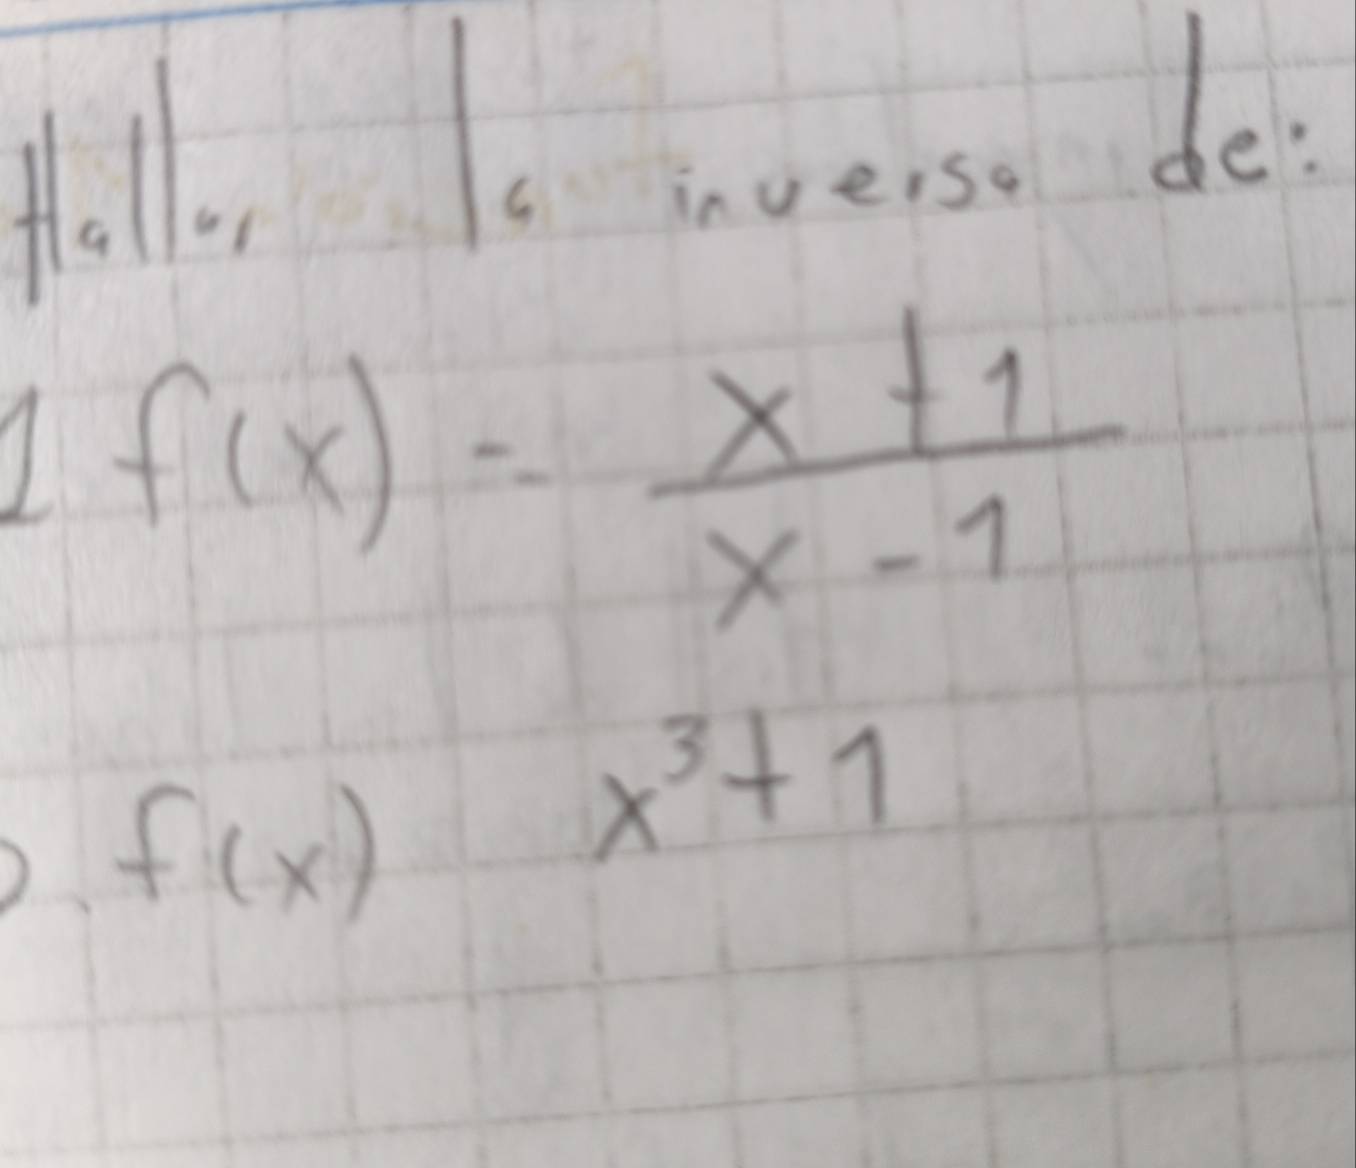 Hallar la inversa de:
1 f(x) = x + 1
x - 1
f(x) x³ + 1